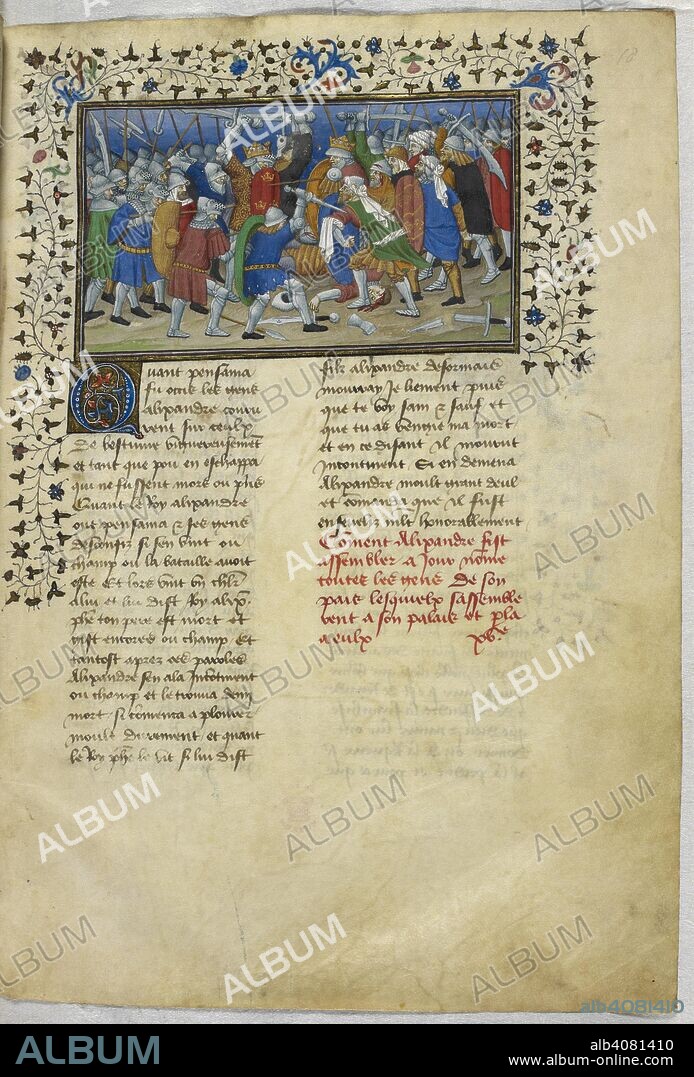 18
Quant pensama
fu occis les gens
alixandre couru
rent sur ceulx
De bestune vigueureusemet
et tant que pou en eschappa
qui ne fussent mors ou pris
Quant le Roy alixandre
out pensama & ses gens
desconfiz si sen vint ou
champ ou la bataille avoit
este Et lors vint vn chlr
a lui et lui dist Roy alix
phe ton pere est mort et
gist encores ou champ Et
tantost aprez ces paroles
Alixandre sen ala Incontinent
ou champ et le trouua demi
mort si comenca a plourer
moult durement et quant
le Roy phe le vit si lui dist
filz alixandre desormais
mourray Je liement puis
que te voy sain & sauf et
que tu as vengie ma mort
et en ce disant il mourut
incontinent Si en demena
Alixandre moult grant deul
et comanda que il fust
enseuely mlt honorablement
Coment Alixandre fist
assembler a Jour nome
toutes les gens De son
pais lesquielx sassemble
rent a son palais et pla
a eulx xve
ALBUM
alb4081410
www.album-online.com